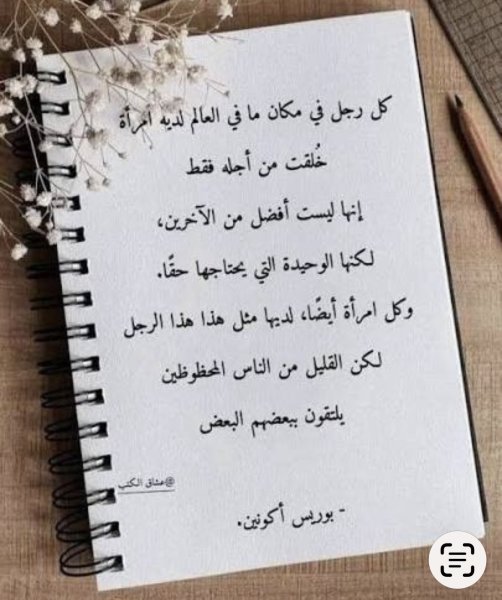 كل رجل في مكان ما في العالم لديه امرأة
خُلقت من أجله فقط
إنها ليست أفضل من الآخرين،
لكنها الوحيدة التي يحتاجها حقًا.
وكل امرأة أيضًا، لديها مثل هذا هذا الرجل
لكن القليل من الناس المحظوظين
يلتقون ببعضهم البعض
@عشاق الكتب
- بوريس أكونين.